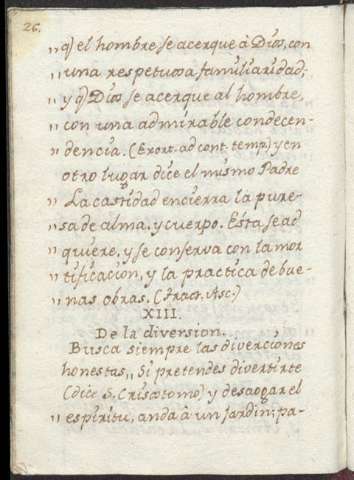 26.
„ q̃ el hombre se acerque à Dios, con
„ una respetuosa familiaridad;
„ y q̃ Dios se acerque al hombre,
„ con una admirable condecen-
„ dencia. (Exort. ad cont. temp.) y en
otro lugar dice el mismo Padre
„ La castidad encierra la pure-
„ sa de alma, y cuerpo. Esta se ad
„ quiere, y se conserva con la mor
„ tificacion, y la practica de bue-
„ nas obras. (Tract. Asc.)
XIII.
De la diversion.
Busca siempre las diverciones
honestas „ Si pretendes divertirte
(dice S. Crisostomo) y desaogar el
„ espiritu, anda à un jardin; pa-